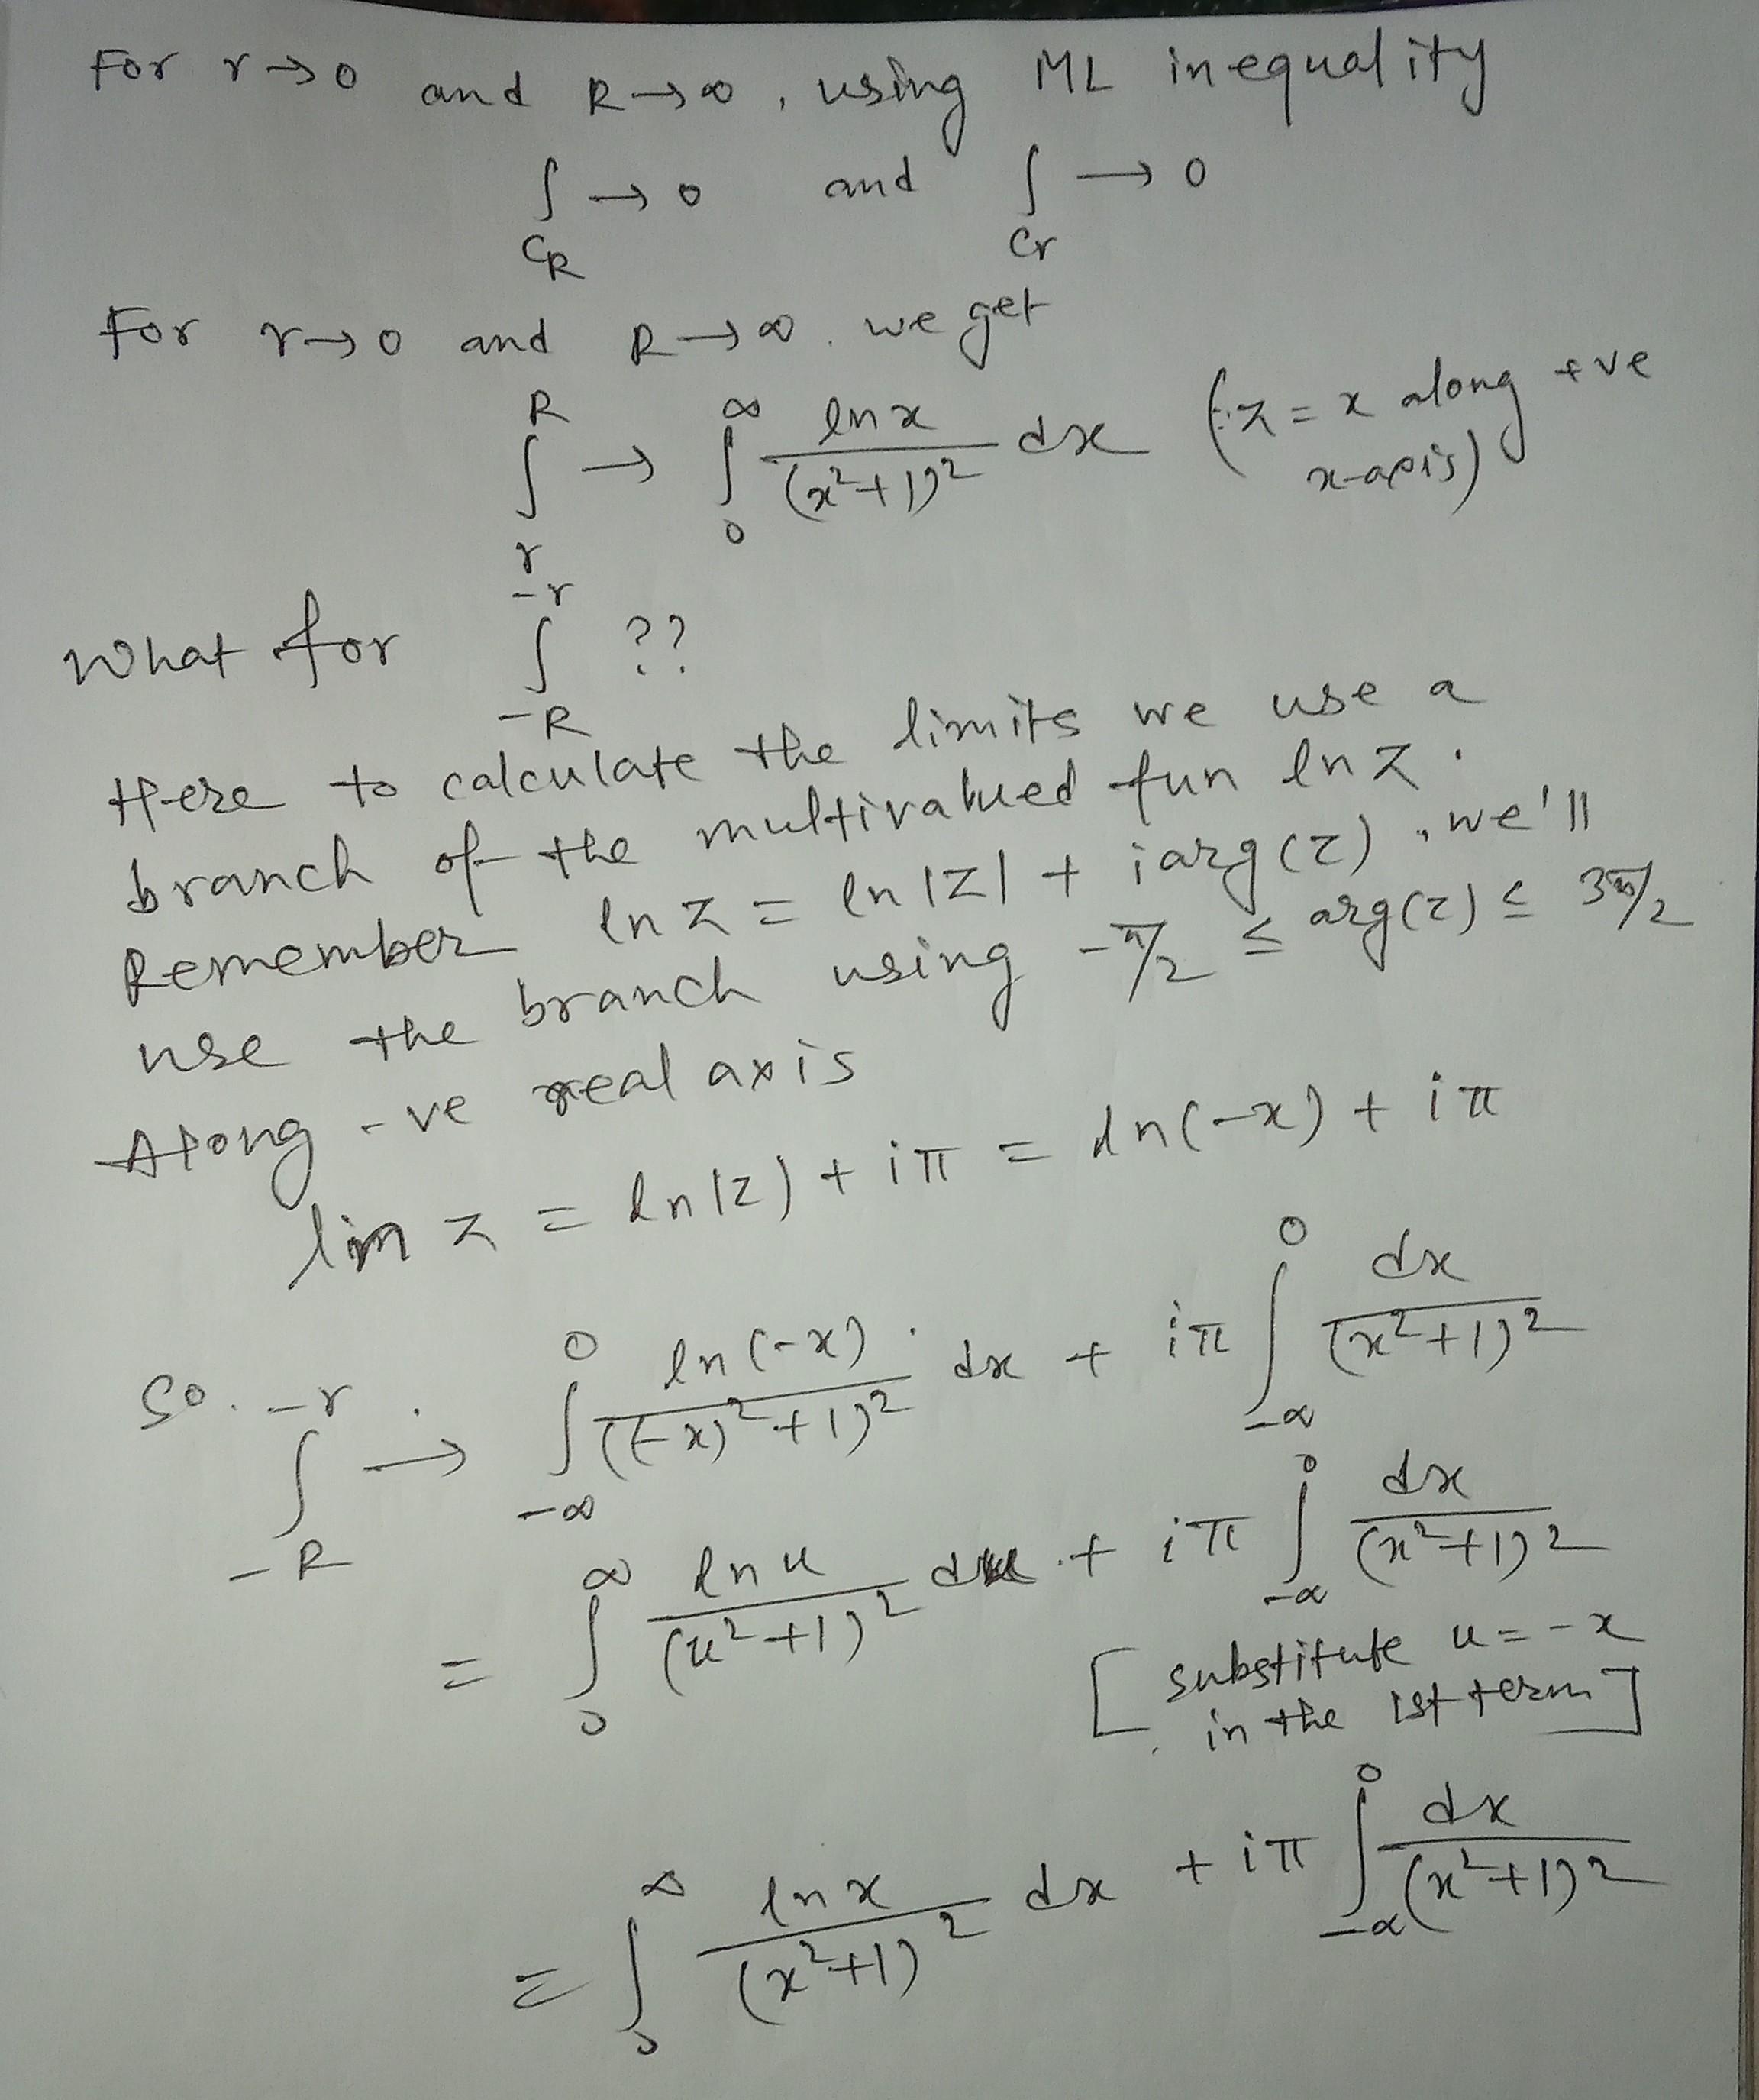 For r→0 and R→∞, using ML inequality
∫_{C_R} →0 and ∫_{Cr} →0
For r→0 and R→∞, we get
∫_r^R → ∫_0^∞ ln x/(x²+1)² dx (∵ z = x along +ve x-axis)
What for ∫_{-R}^{-r} ??
Here to calculate the limits we use a
branch of the multivalued fun ln z.
Remember ln z = ln |z| + i arg(z), we'll
use the branch using -π/2 ≤ arg(z) ≤ 3π/2
Along -ve real axis
lim z = ln |z) + iπ = ln(-x) + iπ
So. ∫_{-R}^{-r} → ∫_{-∞}^0 ln(-x)/((-x)²+1)² dx + iπ ∫_{-∞}^0 dx/(x²+1)²
= ∫_0^∞ ln u/(u²+1)² du + iπ ∫_{-∞}^0 dx/(x²+1)²
[substitute u = -x
in the 1st term]
= ∫_0^∞ ln x/(x²+1)² dx + iπ ∫_{-∞}^0 dx/(x²+1)²